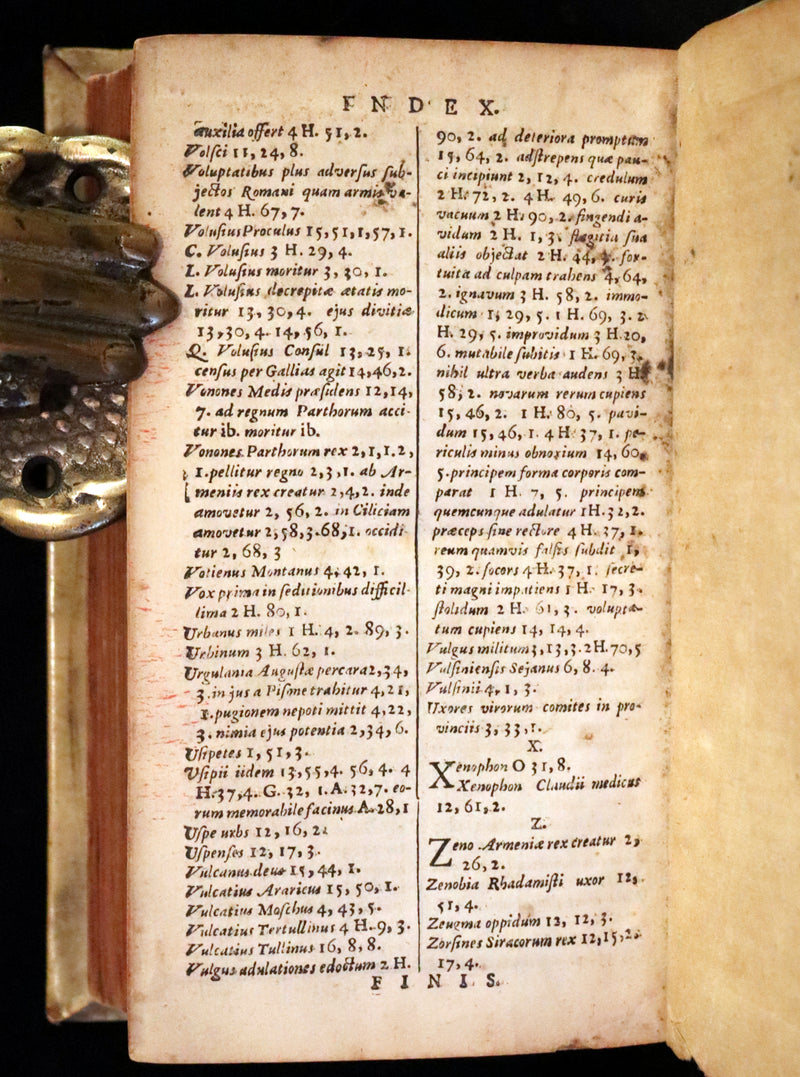 I N D E X.
auxilia offert 4 H. 51, 2.
Volſci 11, 24, 8.
Voluptatibus plus adverſus ſub-
jectos Romani quam armis va-
lent 4 H. 67, 7.
Voluſius Proculus 15, 51, 1, 57, 1.
C. Voluſius 3 H. 29, 4.
L. Voluſius moritur 3, 30, 1.
L. Voluſius decrepitæ ætatis mo-
ritur 13, 30, 4. ejus divitiæ
13, 30, 4. 14, 56, 1.
Q. Voluſius Conſul 13, 25, 1.
cenſus per Gallias agit 14, 46, 2.
Vonones Medis præſidens 12, 14,
7. ad regnum Parthorum acci-
tur ib. moritur ib.
Vonones Parthorum rex 2, 1, 1. 2,
1. pellitur regno 2, 3, 1. ab Ar-
meniis rex creatur 2, 4, 2. inde
amovetur 2, 56, 2. in Ciliciam
amovetur 2, 58, 3. 68, 1. occidi
tur 2, 68, 3
Votienus Montanus 4, 42, 1.
Vox prima in ſeditionibus difficil-
lima 2 H. 80, 1.
Urbanus miles 1 H. 4, 2. 89, 3.
Urbinum 3 H. 62, 1.
Urgulania Auguſtæ percara 2, 34,
3. in jus a Piſone trahitur 4, 21,
1. pugionem nepoti mittit 4, 22,
3. nimia ejus potentia 2, 34, 6.
Uſipetes 1, 51, 3.
Uſipii iidem 13, 55, 4. 56, 4. 4
H. 37, 4. G. 32, 1. A. 32, 7. eo-
rum memorabile facinus A. 28, 1
Uſpe urbs 12, 16, 2.
Uſpenſes 12, 17, 3.
Vulcanus deus 15, 44, 1.
Vulcatius Araricus 15, 50, 1.
Vulcatius Moſchus 4, 43, 5.
Vulcatius Tertullinus 4 H. 9, 3.
Vulcatius Tullinus 16, 8, 8.
Vulgus adulationes edoctum 2 H.
90, 2. ad deteriora promptum
15, 64, 2. adſtrepens quæ pau-
ci incipiunt 2, 12, 4. credulum
2 H. 72, 2. 4 H. 49, 6. curis
vacuum 2 H. 90, 2. fingendi a-
vidum 2 H. 1, 3. flagitia ſua
aliis objectat 2 H. 44, for-
tuita ad culpam trahens 4, 64,
2. ignavum 3 H. 58, 2. immo-
dicum 1, 29, 5. 1 H. 69, 3. 2
H. 29, 5. improvidum 3 H. 20,
6. mutabile ſubitis 1 H. 69, 3.
nihil ultra verba audens 3 H.
58, 2. novarum rerum cupiens
15, 46, 2. 1 H. 80, 5. pavi-
dum 15, 46, 1. 4 H. 37, 1. pe-
riculis minus obnoxium 14, 60,
5. principem forma corporis com-
parat 1 H. 7, 5. principem
quemcunque adulatur 1 H. 32, 2.
præceps ſine rectore 4 H. 37, 1.
reum quamvis falſis ſubdit 1,
39, 2. ſocors 4 H. 37, 1. ſecre-
ti magni impatiens 1 H. 17, 3.
ſtolidum 2 H. 61, 3. volupta-
tum cupiens 14, 14, 4.
Vulgus militum 3, 13, 3. 2 H. 70, 5
Vulſinienſis Sejanus 6, 8. 4.
Vulſinii 4, 1, 3.
Uxores virorum comites in pro-
vinciis 3, 33, 1.
X.
Xenophon O 31, 8.
Xenophon Claudii medicus
12, 61, 2.
Z.
Zeno Armeniæ rex creatur 2,
26, 2.
Zenobia Rhadamiſti uxor 12,
51, 4.
Zeugma oppidum 12, 12, 3.
Zorſines Siracorum rex 12, 15, 2.
17, 4.
F I N I S.